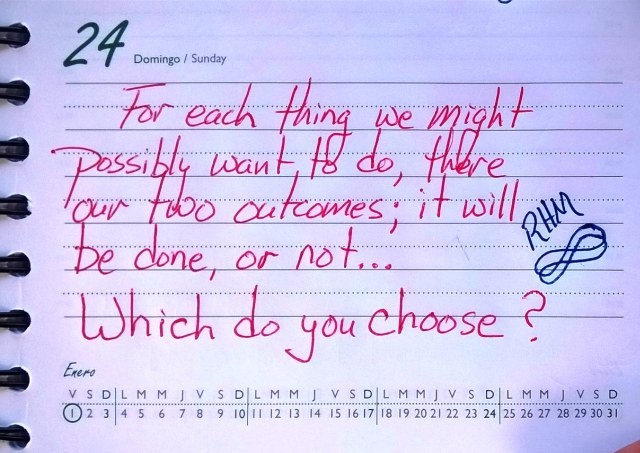 24 Domingo / Sunday
For each thing we might
possibly want to do, there
our two outcomes; it will
be done, or not...
RHM
Which do you choose?
Enero
V S D L M M J V S D L M M J V S D L M M J V S D L M M J V S D
1 2 3 4 5 6 7 8 9 10 11 12 13 14 15 16 17 18 19 20 21 22 23 24 25 26 27 28 29 30 31